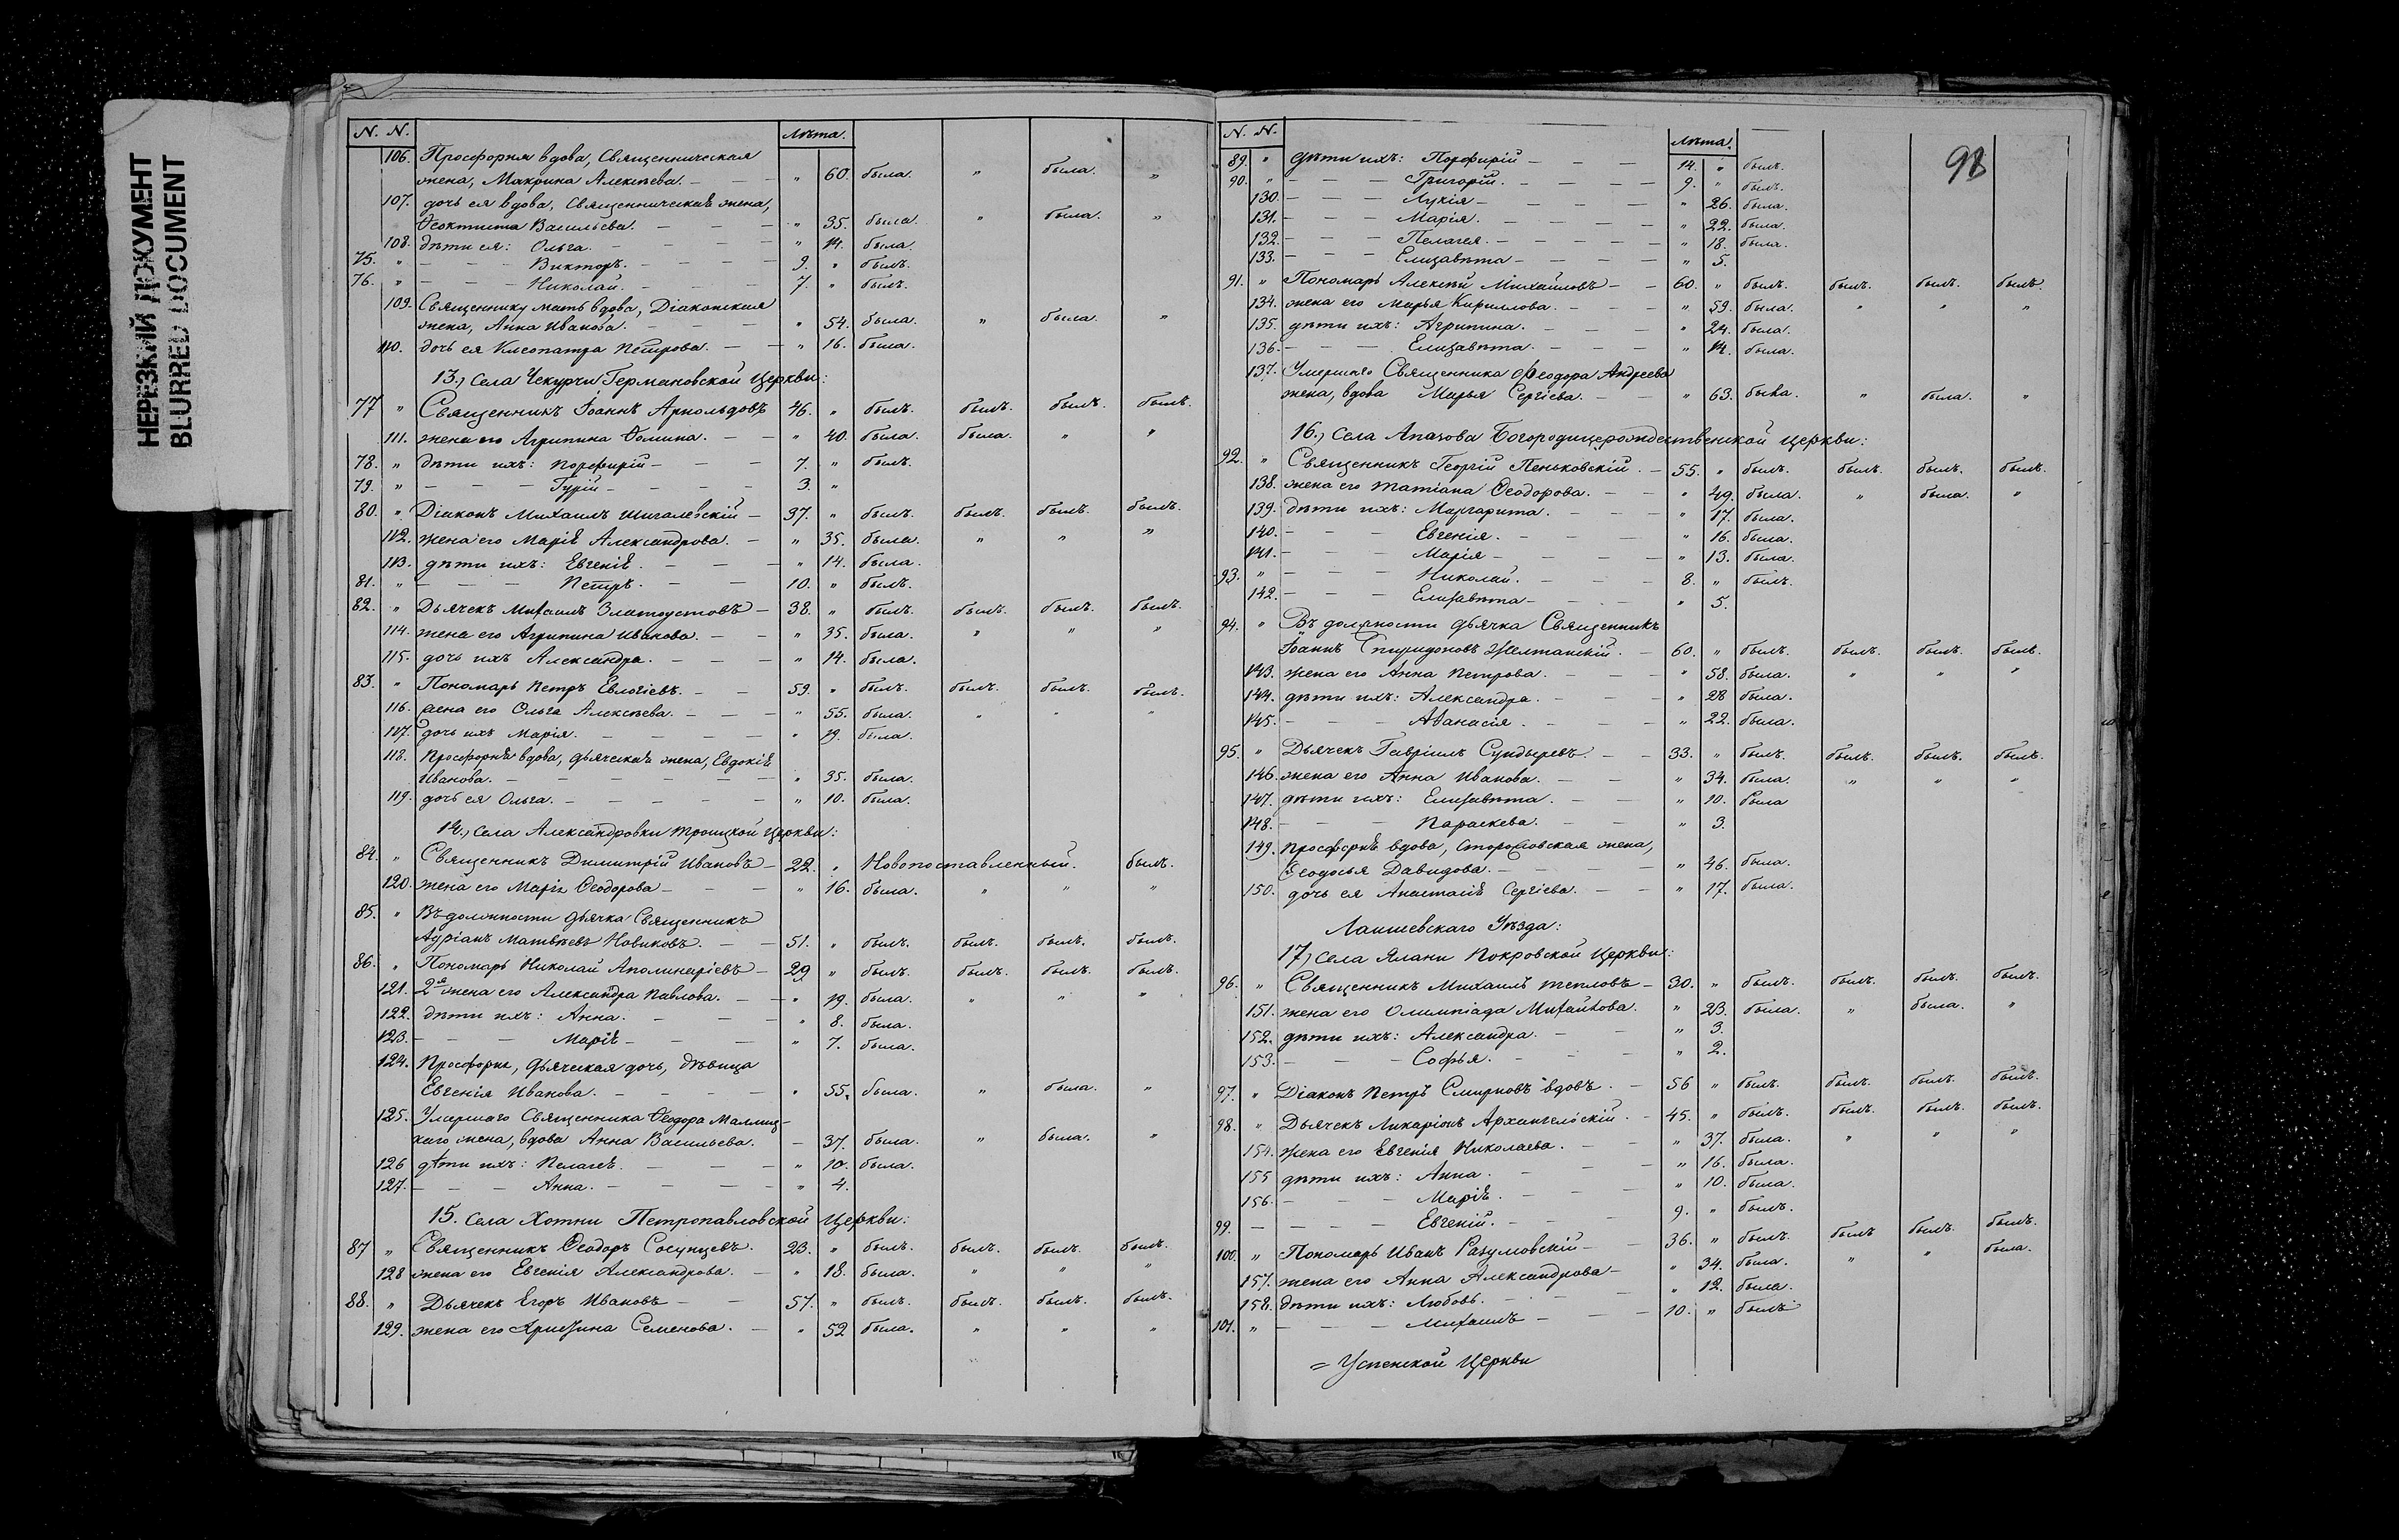 НЕРЕЗКИЙ ДОКУМЕНТ
BLURRED DOCUMENT
N. N. Лѣта.
106. Просфорня вдова, Священническая
жена, Макрина Алексѣева. — " 60. была. " была. "
107. дочь ея вдова, Священническая жена,
Ѳеоктиста Васильева. — — — " 35. была. " была. "
108. дѣти ея: Ольга. — — — " 14. была.
75. " — — — Викторъ. — — — 9. " былъ.
76. " — — — Николай. — — — 7. " былъ.
109. Священнику мать вдова, Діаконская
жена, Анна Иванова. — — — " 54. была. " была. "
110. дочь ея Клеопатра Петрова. — — " 16. была.
13.) Села Чекурчи Германовской Церкви:
77 " Священникъ Іоаннъ Арнольдовъ 46. " былъ. былъ. былъ. былъ.
111. жена его Агрипина Ѳомина. — — " 40. была. была. " "
78. " дѣти ихъ: Порфирій — — — 7. " былъ.
79. " — — — Гурій — — — — 3. "
80. " Діаконъ Михаилъ Шигалевскій — 37. " былъ. былъ. былъ. былъ.
112. жена его Марія Александрова. — " 35. была. " " "
113. дѣти ихъ: Евгенія. — — — " 14. была.
81. " — — — Петръ. — — — 10. " былъ.
82. " Дьячекъ Михаилъ Златоустовъ — 38. " былъ. былъ. былъ. былъ.
114. жена его Агрипина Иванова. — — " 35. была. " " "
115. дочь ихъ Александра. — — — " 14. была.
83. " Пономарь Петръ Евлогіевъ. — — 59. " былъ. былъ. былъ. былъ.
116. жена его Ольга Алексѣева. — — — " 55. была. " " "
117. дочь ихъ Марія. — — — — " 19. была.
118. Просфорня вдова, дьяческая жена, Евдокія
Иванова. — — — — — — " 35. была.
119. дочь ея Ольга. — — — — — " 10. была.
14.) Села Александровки Троицкой Церкви:
84. " Священникъ Димитрій Ивановъ — 22. " Новопоставленный. былъ.
120. жена его Марія Ѳеодорова — — — " 16. была. " " "
85. " Въ должности дьячка Священникъ
Адріанъ Матвѣевъ Новиковъ. — — 51. " былъ. былъ. былъ. былъ.
86. " Пономарь Николай Аполинаріевъ — 29 " былъ. былъ. былъ. былъ.
121. 2я жена его Александра Павлова. — — " 19. была. " " "
122. дѣти ихъ: Анна. — — — " 8. была.
123. — — — Марія — — — " 7. была.
124. Просфорня, дьяческая дочь, дѣвица
Евгенія Иванова. — — — — — " 55. была. " была. "
125. Умершаго Священника Ѳеодора Малмиц-
каго жена, вдова Анна Васильева. — 37. была. " была. "
126 дѣти ихъ: Пелагея. — — — " 10. была.
127. — — — Анна. — — — — " 4.
15. Села Хотни Петропавловской Церкви:
87 " Священникъ Ѳеодоръ Сосунцевъ. 23. " былъ. былъ. былъ. былъ.
128 жена его Евгенія Александрова. — " 18. была. " " "
88. " Дьячекъ Егоръ Ивановъ — — 57. " былъ. былъ. былъ. былъ.
129. жена его Семенова. — " 52 была. " " "
N. N. Лѣта. 98
89. " дѣти ихъ: Порфирій — — — 14. " былъ.
90. " — — — Григорій. — — — — 9. " былъ.
130. — — — Лукія — — — — " 26. была.
131. — — — Марія. — — — — " 22. была.
132. — — — Пелагея. — — — — " 18. была.
133. — — — Елизавѣта — — — — " 5.
91. " Пономарь Алексѣй Михайловъ — — 60. " былъ. былъ. былъ. былъ.
134. жена его Марья Кириллова. — — — " 59. была. " " "
135. дѣти ихъ: Агрипина. — — — " 24. была.
136. — — — Елизавѣта. — — — " 14. была.
137. Умершаго Священника Ѳеодора Андреева
жена, вдова Марья Сергіева. — — " 63. была. " была. "
16.) Села Апазова Богородицерождественской Церкви:
92. " Священникъ Георгій Пеньковскій. — 55. " былъ. былъ. былъ. былъ.
138. жена его Татіана Ѳеодорова. — — " 49. была. " была. "
139. дѣти ихъ: Маргарита. — — — " 17. была.
140. — — Евгенія. — — — — " 16. была.
141. — — — Марія — — — — " 13. была.
93. " — — — Николай. — — — 8. " былъ.
142. — — — Елизавѣта — — — " 5.
94. " Въ должности дьячка Священникъ
Іоаннъ Спиридоновъ — 60. " былъ. былъ. былъ. былъ.
143. жена его Анна Петрова. — — — " 58. была. " " "
144. дѣти ихъ: Александра. — — — " 28 была.
145. — — — Аѳанасія. — — — — " 22. была.
95. " Дьячекъ Гавріилъ Сундыревъ. — — 33. " былъ. былъ. былъ. былъ.
146. жена его Анна Иванова. — — " 34. была. " " "
147. дѣти ихъ: Елизавѣта. — — " 10. была
148. — — — Параскева. — — — " 3.
149. Просфорня вдова, жена,
Ѳеодосья Давидова. — — — — — " 46. была.
150. дочь ея Анастасія Сергіева. — — " 17. была.
Лаишевскаго Уѣзда:
17) Села Ялани Покровской Церкви:
96. " Священникъ Михаилъ Тепловъ — 30. " былъ. былъ. былъ. былъ.
151. жена его Олимпіада Михайлова. " 23. была. " была. "
152. дѣти ихъ: Александра. — — " 3.
153. — — — Софья. — — — " 2.
97. " Діаконъ Петръ Смирновъ вдовъ. — 56 " былъ. былъ. былъ. былъ.
98. " Дьячекъ Архангельскій. — 45. " былъ. былъ. былъ. былъ.
154. жена его Евгенія Николаева. — — " 37. была. " " "
155 дѣти ихъ: Анна. — — — " 16. была.
156. — — — Марія. — — — " 10. была.
99. — — — — Евгеній. — — — 9. " былъ.
100. " Пономарь Иванъ Разумовскій — 36. " былъ. былъ былъ. былъ.
157. жена его Анна Александрова — " 34. была. " " была.
158. дѣти ихъ: Любовь. — — — " 12. была.
101. " — — — Михаилъ — — — 10. " былъ
= Успенской Церкви